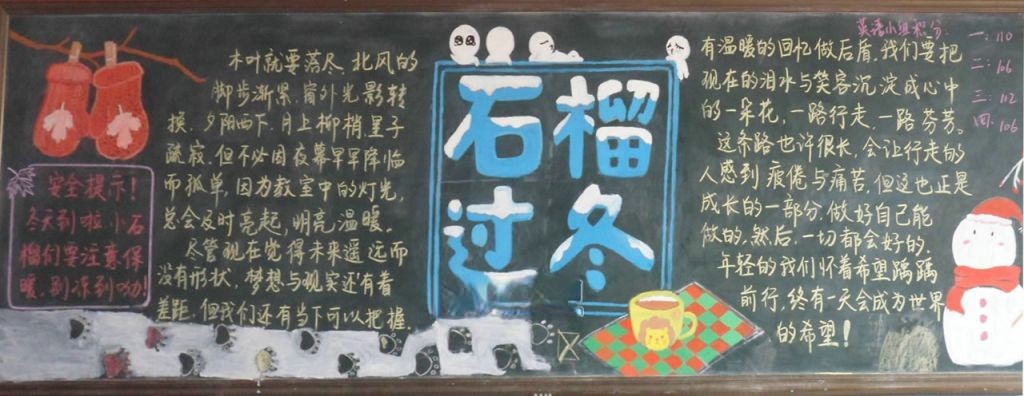 木叶就要落尽，北风的
脚步渐紧，窗外光影转
换，夕阳西下，月上柳梢，星子
疏寂，但不必因夜幕早早降临
而孤单，因为教室中的灯光，
总会及时亮起，明亮，温暖。
尽管现在觉得未来遥远而
没有形状，梦想与现实还有着
差距，但我们还有当下可以把握，
安全提示！
冬天到啦，小石
榴们要注意保
暖，别冻到呦！
石榴
过冬
有温暖的回忆做后盾，我们要把
现在的泪水与笑容沉淀成心中
的一朵花，一路行走，一路芬芳。
这条路也许很长，会让行走的
人感到疲倦与痛苦，但这也正是
成长的一部分，做好自己能
做的，然后，一切都会好的。
年轻的我们怀着希望踽踽
前行，终有一天会成为世界
的希望！
英语小组积分：
一：110
二：106
三：112
四：106